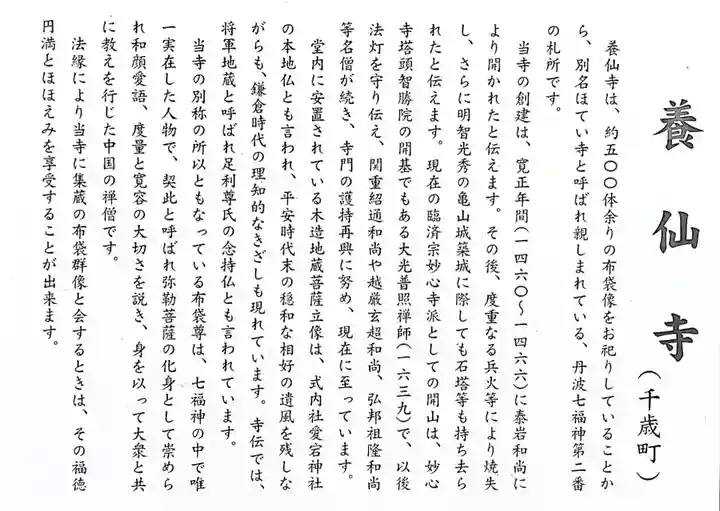 養仙寺(千歳町)
養仙寺は、約五〇〇体余りの布袋像をお祀りしていることか
ら、別名ほてい寺と呼ばれ親しまれている、丹波七福神第二番
の札所です。
当寺の創建は、寛正年間(一四六〇～一四六六)に泰岩和尚に
より開かれたと伝えます。その後、度重なる兵火等により焼失
し、さらに明智光秀の亀山城築城に際しても石塔等も持ち去ら
れたと伝えます。現在の臨済宗妙心寺派としての開山は、妙心
寺塔頭智勝院の開基でもある大光普照禅師(一六三九)で、以後
法灯を守り伝え、関重紹通和尚や越厳玄超和尚、弘邦祖隆和尚
等名僧が続き、寺門の護持再興に努め、現在に至っています。
堂内に安置されている木造地蔵菩薩立像は、式内社愛宕神社
の本地仏とも言われ、平安時代末の穏和な相好の遺風を残しな
がらも、鎌倉時代の理知的なきざしも現れています。寺伝では、
将軍地蔵と呼ばれ足利尊氏の念持仏とも言われています。
当寺の別称の所以ともなっている布袋尊は、七福神の中で唯
一実在した人物で、契此と呼ばれ弥勒菩薩の化身として崇めら
れ和顔愛語、度量と寛容の大切さを説き、身を以って大衆と共
に教えを行じた中国の禅僧です。
法縁により当寺に集蔵の布袋群像と会するときは、その福徳
円満とほほえみを享受することが出来ます。